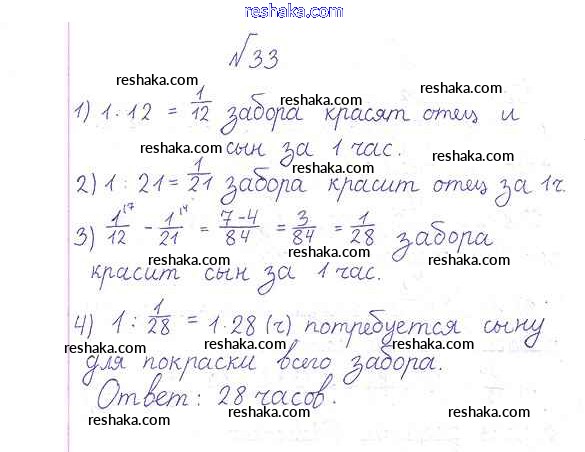 reshaka.com
№33
reshaka.com reshaka.com reshaka.com
1) 1:12 = 1/12 забора красят отец и
сын за 1 час.
reshaka.com reshaka.com reshaka.com
2) 1:21 = 1/21 забора красит отец за 1ч.
reshaka.com reshaka.com reshaka.com
3) 1/12 - 1/21 = 7-4/84 = 3/84 = 1/28 забора
красит сын за 1 час.
reshaka.com reshaka.com reshaka.com
4) 1 : 1/28 = 1·28 (ч) потребуется сыну
reshaka.com reshaka.com reshaka.com
для покраски всего забора.
Ответ: 28 часов.
reshaka.com reshaka.com reshaka.com